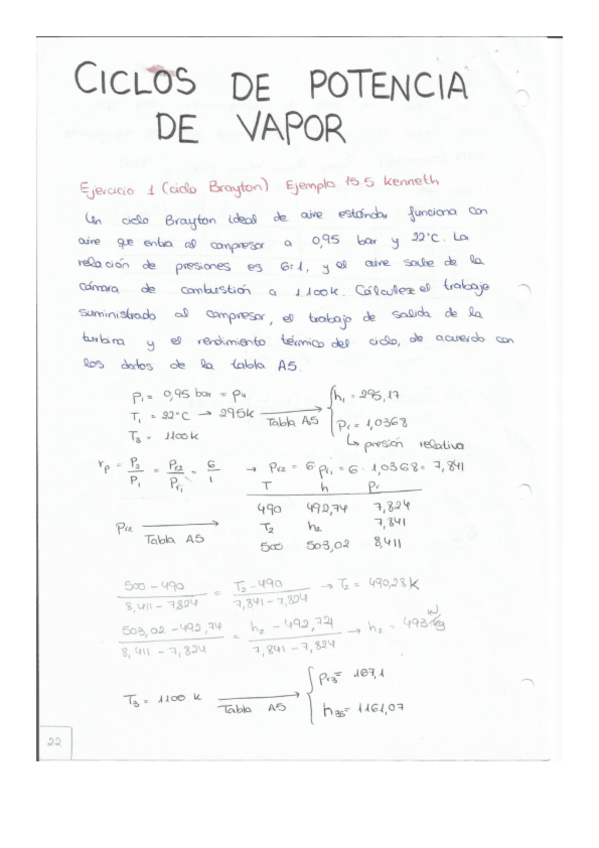 CICLOS DE POTENCIA
DE VAPOR
Ejercicio 1 (ciclo Brayton) Ejemplo 15.5 Kenneth
Un ciclo Brayton ideal de aire estándar funciona con
aire que entra al compresor a 0,95 bar y 22°C. La
relación de presiones es 6:1, y el aire sale de la
cámara de combustión a 1100k. Cálculez el trabajo
suministrado al compresor, el trabajo de salida de la
turbina y el rendimiento térmico del ciclo, de acuerdo con
los datos de la tabla A5.
P1 = 0,95 bar = P4
T1 = 22°C → 295k → Tabla A5
T3 = 1100k
h1 = 295,17
Pr = 1,0368
↳ presión relativa
rp = P2/P1 = Pr2/Pr1 = 6/1 → Pr2 = 6 Pr1 = 6 · 1,0368 = 7,841
T h Pr
490 492,74 7,824
T2 h2 7,841
500 503,02 8,411
Pr2 → Tabla A5
(500-490)/(8,411-7,824) = (T2-490)/(7,841-7,824) → T2 = 490,28k
(503,02-492,74)/(8,411-7,824) = (h2-492,74)/(7,841-7,824) → h2 = 493 kJ/kg
T3 = 1100 k → Tabla A5
Pr3 = 167,1
h3s = 1161,07
22